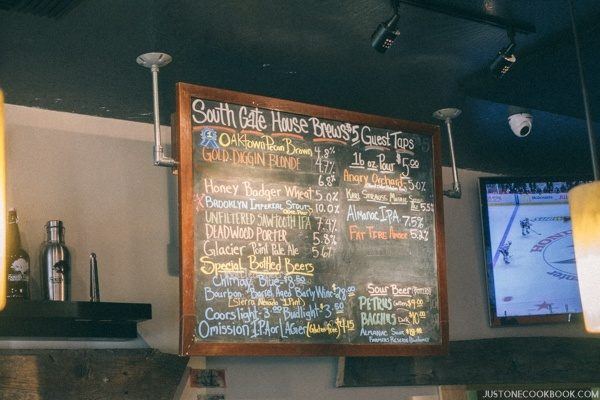 South Gate House Brews $5
Oaktown Pecan Brown 4.8%
Gold Diggin Blonde 4.7%
6.8%
Honey Badger Wheat 5.0%
Brooklyn Imperial Stout 10.2
Unfiltered Sawtooth IPA 7.4%
Deadwood Porter 5.8%
Glacier Point Pale Ale 5.6%
Special Bottled Beers
Chimay Blue - $8.50
Bourbon Barrel Aged Barley Wine - 28.00
Sierra Nevada 1 Pint
Coors light - 3.00 Budlight - $3.00
Omission IPA or Lager (Gluten free) $4.75
Guest Taps
16 oz Pour $5.00
Angry Orchard 5.0%
Karl Strauss 5.5%
Almanac IPA 7.5%
Fat Tire Amber 5.2%
Sour Beer (Bottles)
Petrus $9.00
Bacchus $10.00
Almanac Sour
Farmers Reserve
JUSTONECOOKBOOK.COM